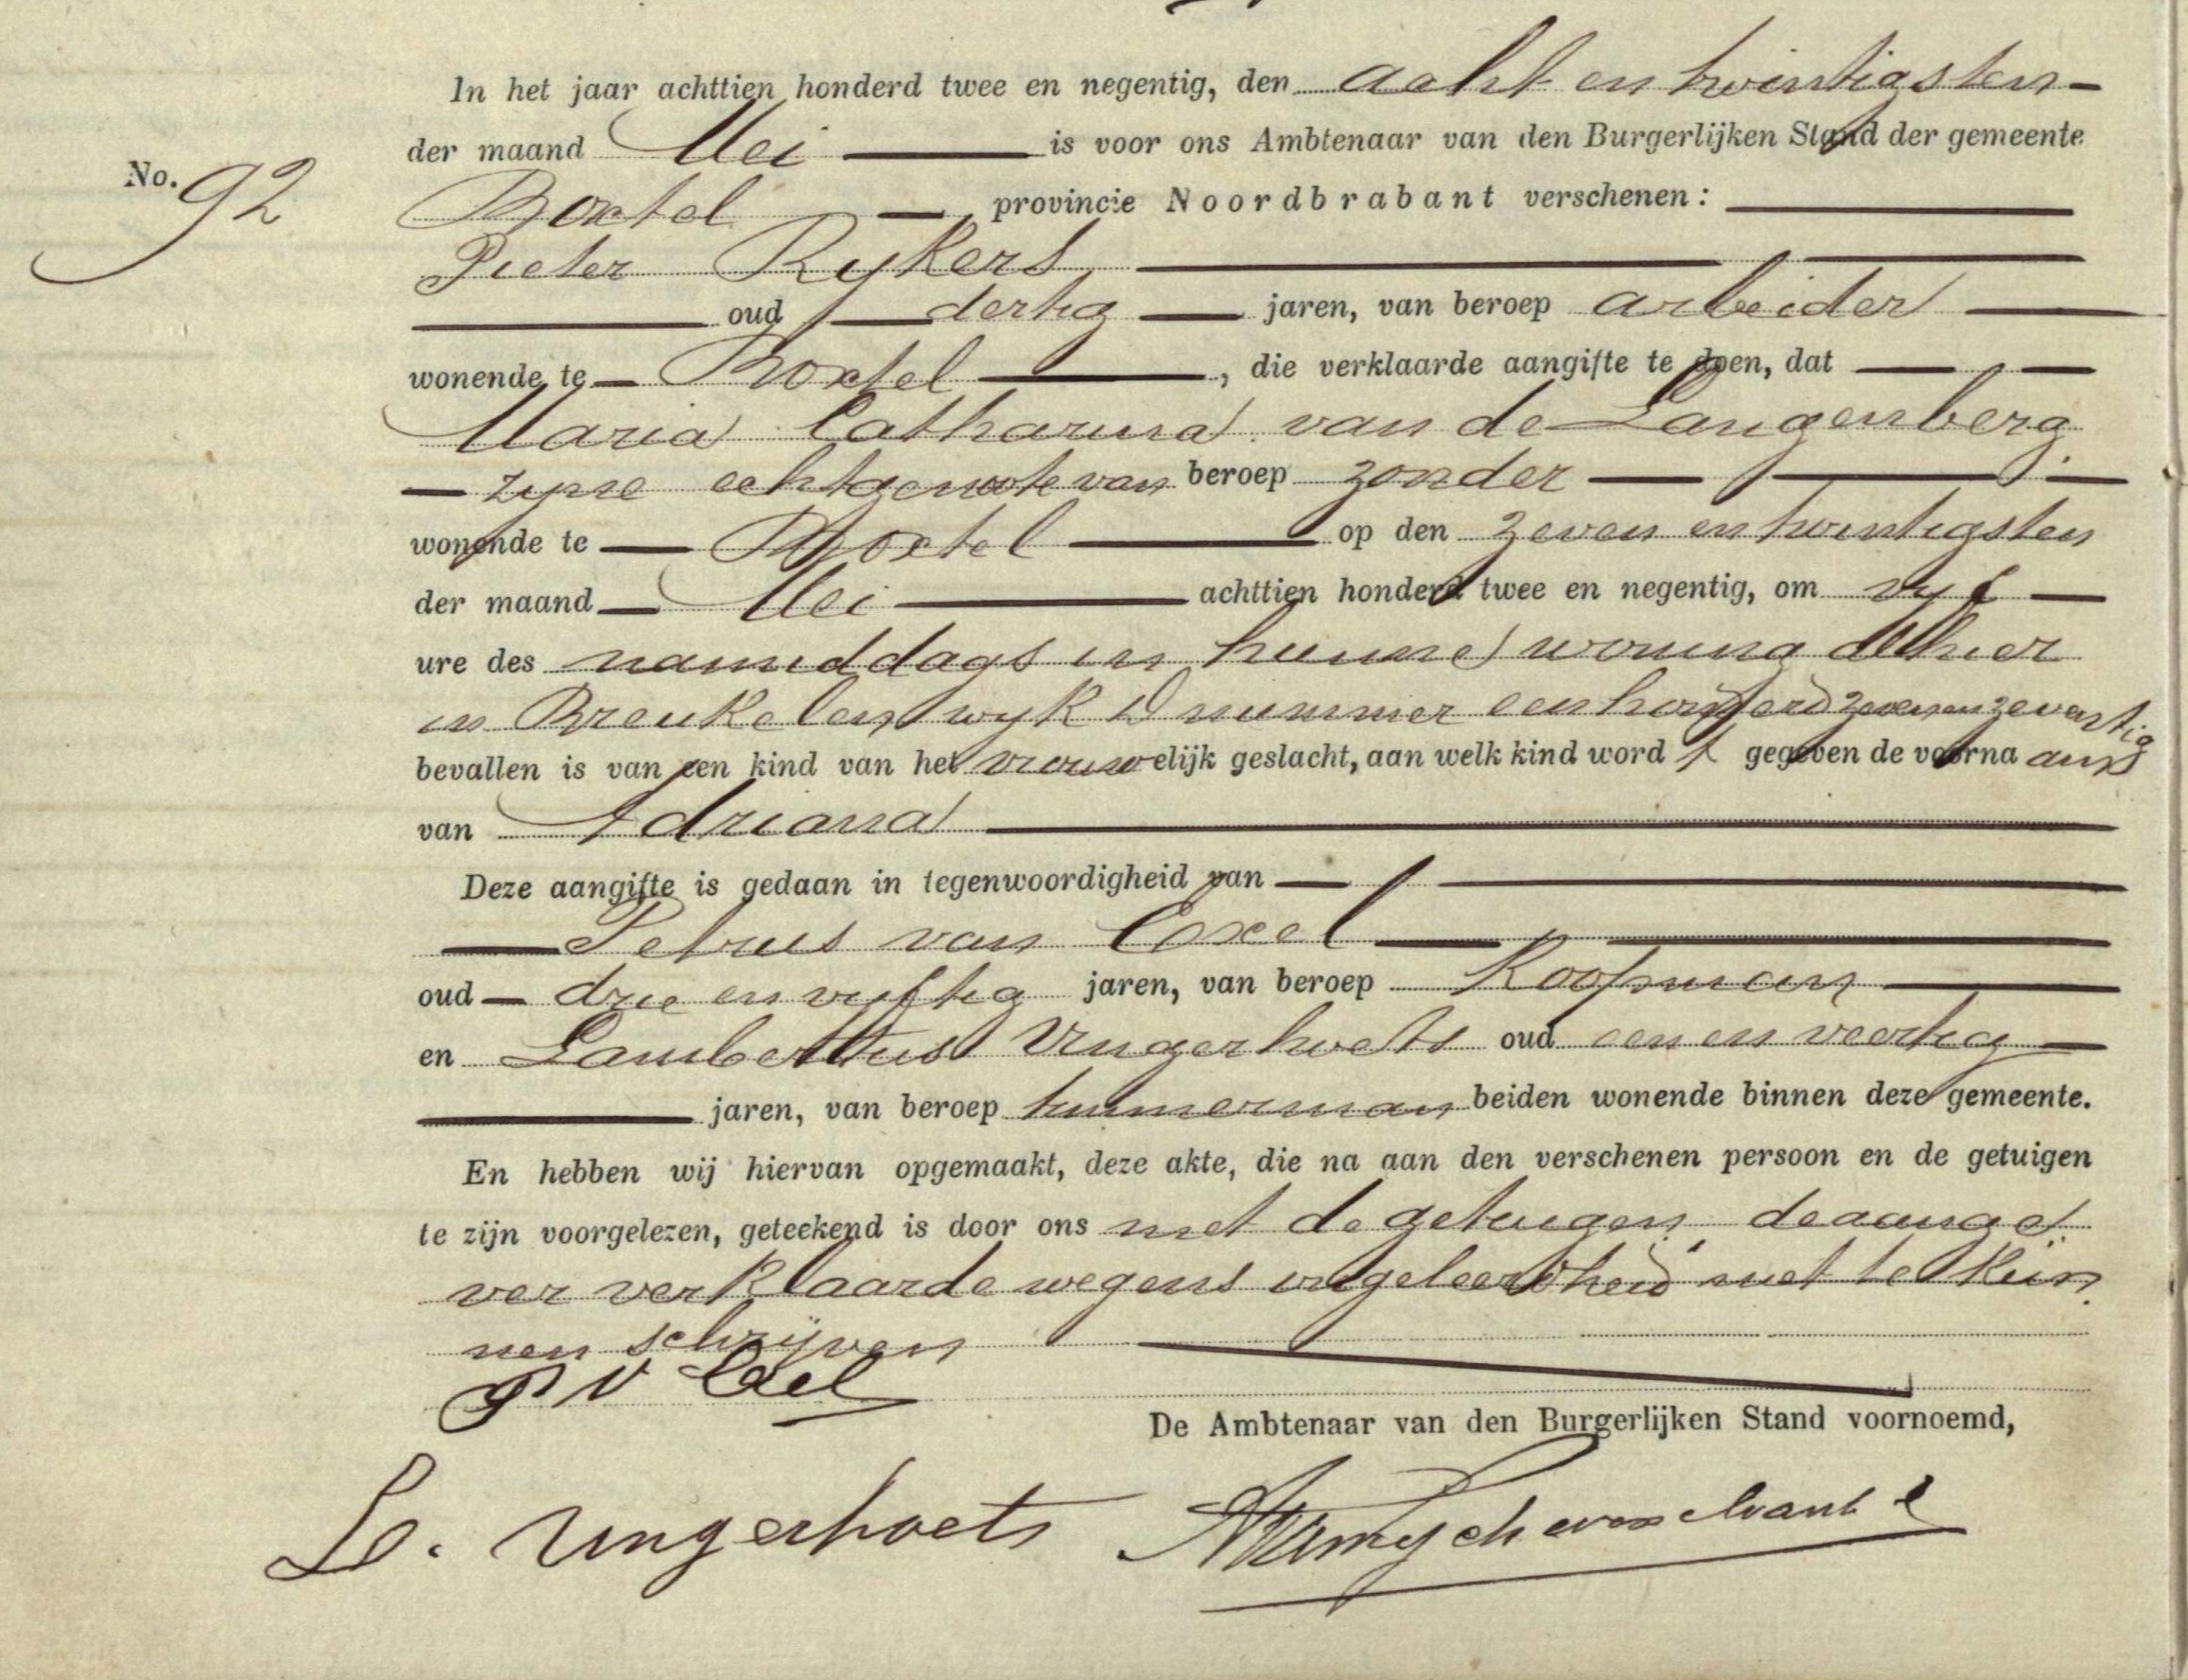 In het jaar achttien honderd twee en negentig, den acht en twintigsten
der maand Mei is voor ons Ambtenaar van den Burgerlijken Stand der gemeente
No. 92
Boxtel, provincie Noordbrabant verschenen:
Pieter Rykers
oud dertig jaren, van beroep arbeider
wonende te Boxtel, die verklaarde aangifte te doen, dat
Maria Catharina van de Langenberg
zyne echtgenoote van beroep zonder
wonende te Boxtel op den zeven en twintigsten
der maand Mei achttien honderd twee en negentig, om vyf
ure des namiddags in hunne woning alhier
in Breukelen wyk D nummer een honderd zeven en zeventig
bevallen is van een kind van het vrouwelijk geslacht, aan welk kind word t gegeven de voorna am
van Adriana
Deze aangifte is gedaan in tegenwoordigheid van
Petrus van Exel
oud drie en vyftig jaren, van beroep Koopman
en Lambertus Vingerhoets oud een en veertig
jaren, van beroep timmerman beiden wonende binnen deze gemeente.
En hebben wij hiervan opgemaakt, deze akte, die na aan den verschenen persoon en de getuigen
te zijn voorgelezen, geteekend is door ons met de getuigen, de aange
ver verklaarde wegens ongeleerdheid niet te kun
nen schrijven
P v Exel
De Ambtenaar van den Burgerlijken Stand voornoemd,
L. Vingerhoets